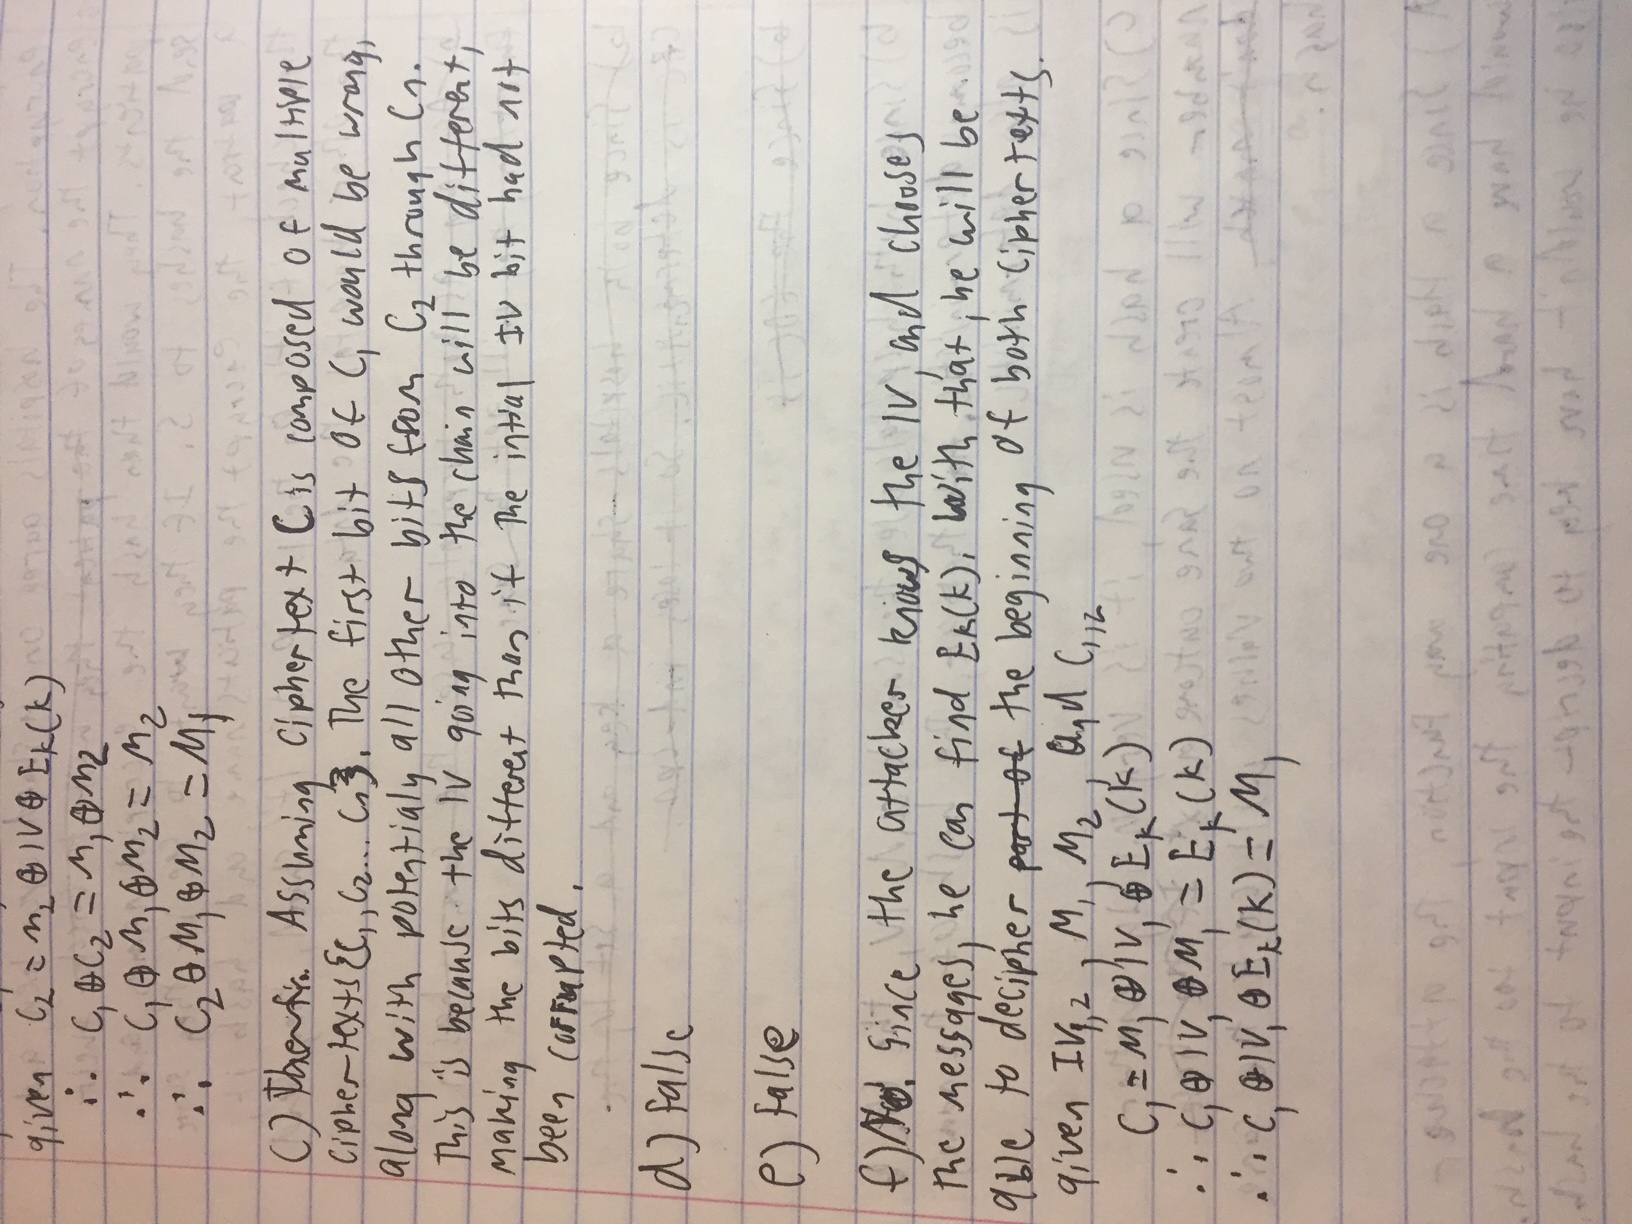 given C₂ = M₂ ⊕ IV ⊕ Eₖ(K)
∴ C₁ ⊕ C₂ = M₁ ⊕ M₂
∴ C₁ ⊕ M₁ ⊕ M₂ = M₂
∴ C₂ ⊕ M₁ ⊕ M₂ = M₁
C) Assuming Ciphertext C is composed of multiple
Ciphertexts {C₁, C₂... Cn}. The first bit of C₁ would be wrong,
along with potentialy all other bits from C₂ through Cn.
This is because the IV going into the chain will be different,
making the bits different than if the intial IV bit had not
been corrupted.
d) False
e) False
f) Since the attacker knows the IV, and chooses
the messages, he can find Eₖ(K). With that, he will be
able to decipher part of the beginning of both Ciphertexts.
given IV₁,₂, M₁, M₂, and C₁,₂
C₁ = M₁ ⊕ IV₁ ⊕ Eₖ(K)
∴ C₁ ⊕ IV₁ ⊕ M₁ = Eₖ(K)
∴ C₁ ⊕ IV₁ ⊕ Eₖ(K) = M₁